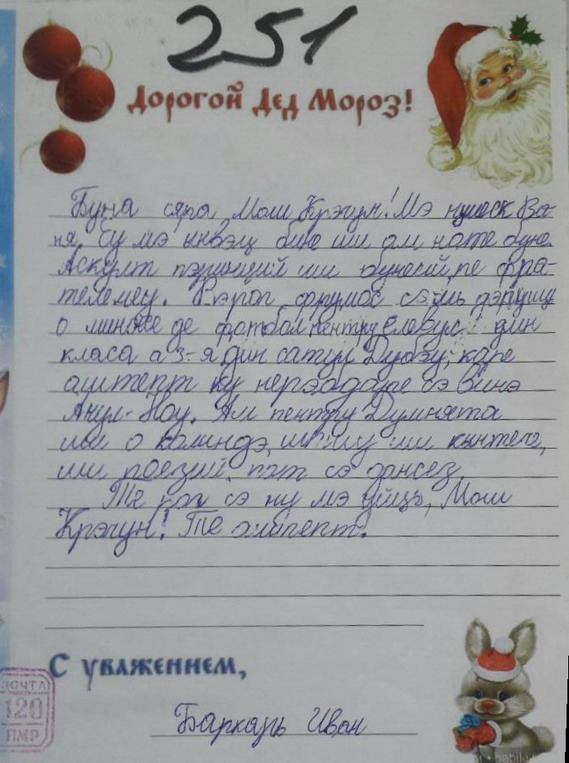 251
Дорогой Дед Мороз!
Буна сяра Мош Крэчун! Мэ нумеск Ва-
ня. Еу мэ ынвэц бине ши ам ноте буне.
Аскулт пэринций ши бунеий, пе фра-
телемеу. Те рог фрумос сэ-мь дэруешь
о минже де фотбол пентру елевул дин
класа а 3-я дин сатул Дубэу, каре
аштептт ку нерэбдаре сэ винэ
Анул-Ноу. Ам пентру Думнята
ши о колиндэ, ши ши кынтече,
ши поезий, пот сэ дансез
Те рог сэ ну мэ уйць, Мош
Крэчун! Те аштепт.
С уважением,
Баркарь Иван
ПОЧТА
120
ПМР